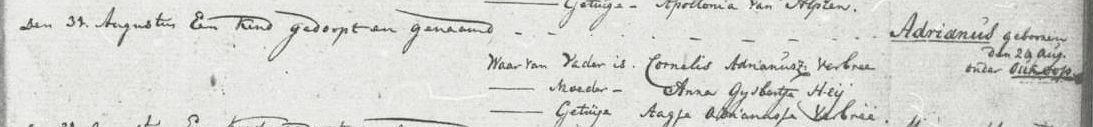 Getuige - Apollonia van Alphen.
Den 31. Augustus Een Kind gedoopt en genaamd - - - - - - - Adrianus geboren
den 29 Aug.
onder Oukoop
Waar van Vader is. Cornelis Adrianusz. Verbree
Moeder - Anna Gysbertje Heij
Getüige Aagje Adrianusse Verbree.